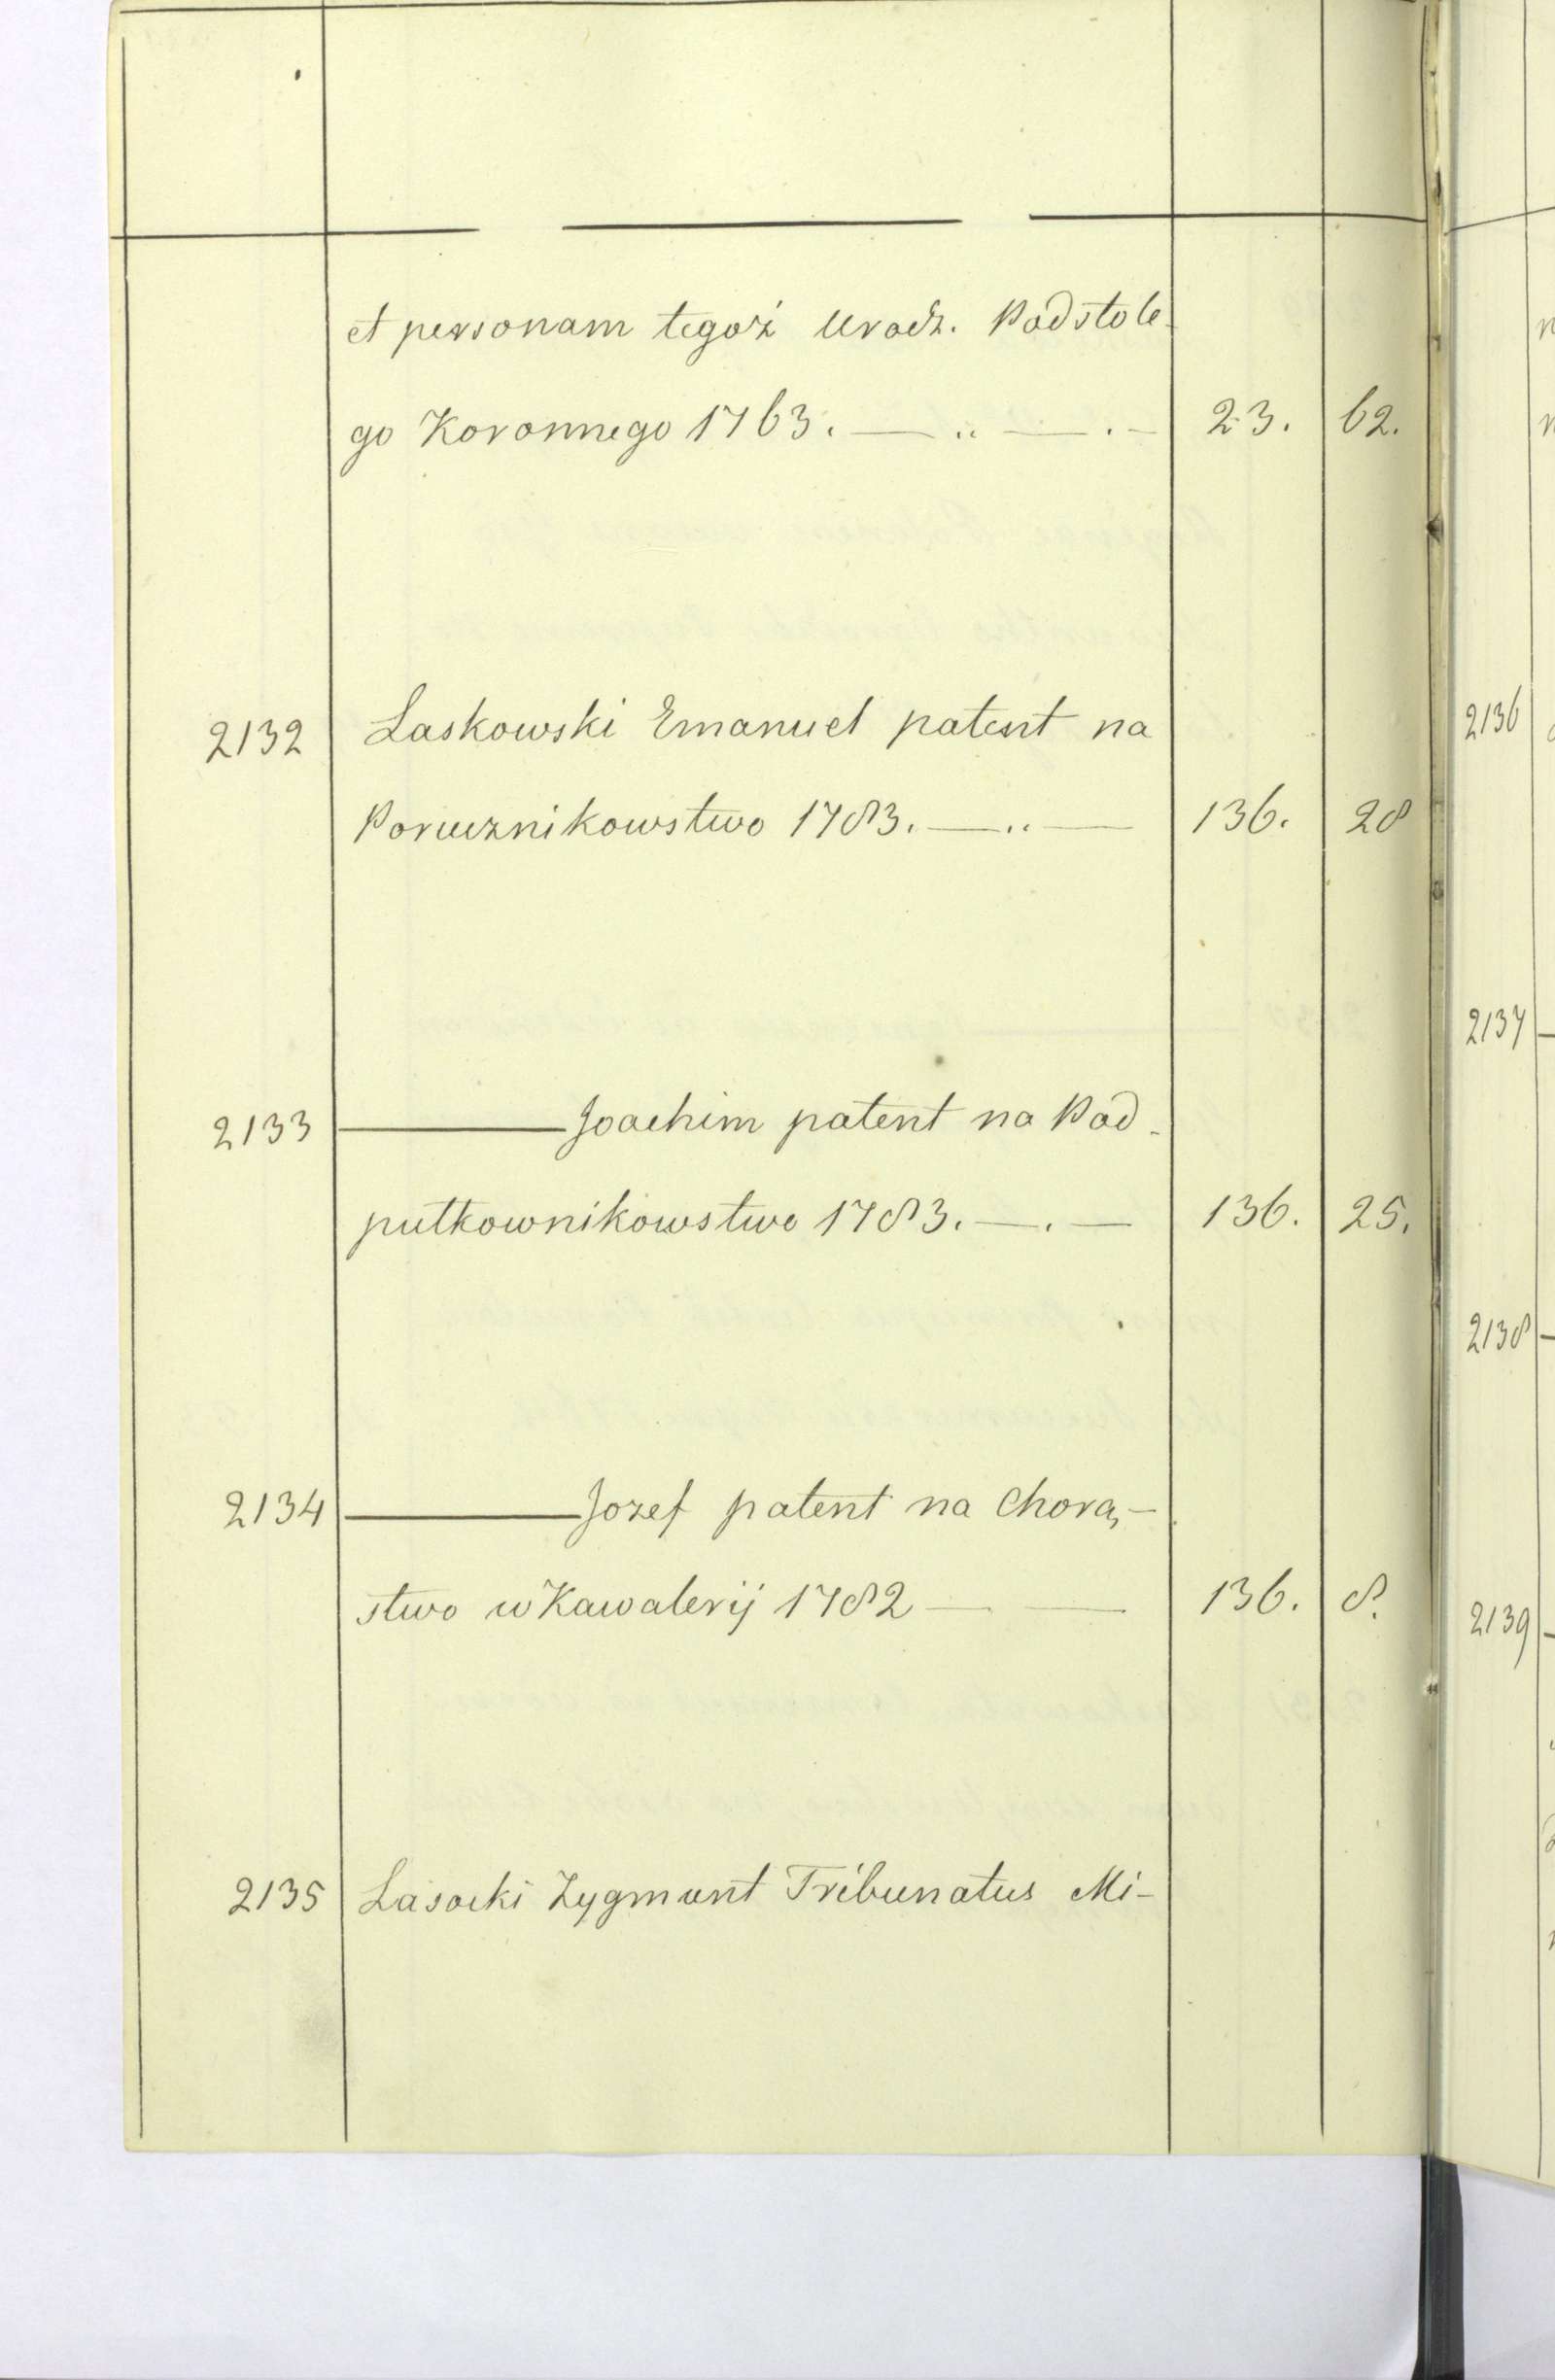 et personam tegoż Urodz. Podstole-
go Koronnego 1763. — .. — . - 23. 62.
2132 Laskowski Emanuel patent na
Porucznikowstwo 1783. — .. — 136. 28
2133 ——— Joachim patent na Pod-
pułkownikowstwo 1783. — . — 136. 25.
2134 ——— Jozef patent na Chorą-
stwo w Kawaleryj 1782 — — 136. 8.
2135 Lasocki Zygmunt Tribunatus Mi-
2136
2137
2138
2139